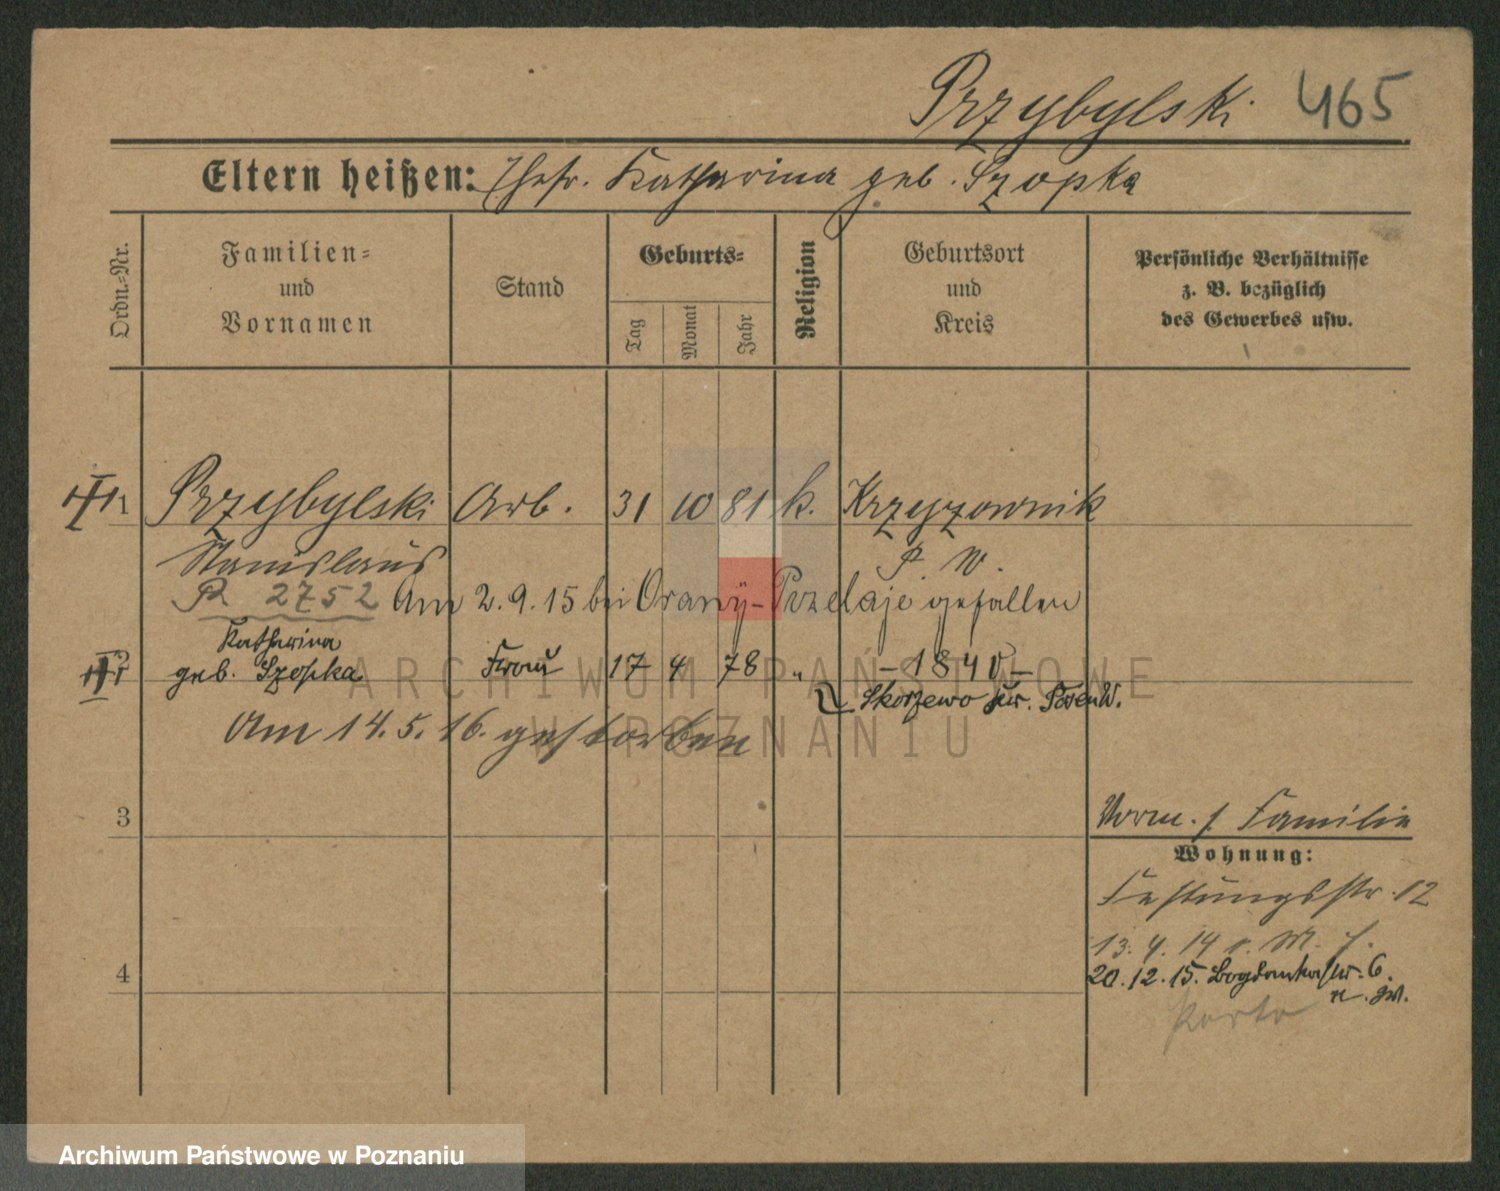 Przybylski 465
Eltern heißen: Ehefr. Katharina geb. Szopka
Ordn.-Nr.
Familien- und Vornamen
Stand
Geburts-
Tag
Monat
Jahr
Religion
Geburtsort und Kreis
Persönliche Verhältnisse
z. B. bezüglich
des Gewerbes usw.
Przybylski Arb. 31 10 81 k. Krzyzownik
Stanislaus P. W.
R 2752 Am 2.9.15 bei Orany-Przelaje gefallen
Katharina
geb. Szopka Frau 17 4 78 " -1840-
Skorzewo Kr. Posen W.
Am 14.5.16. gestorben
3
Familie
Wohnung:
Festungsstr. 12
4
13. 4. 14
20.12.15. Bogdankastr. 6.
Porto
ARCHIWUM PAŃSTWOWE
W POZNANIU
Archiwum Państwowe w Poznaniu